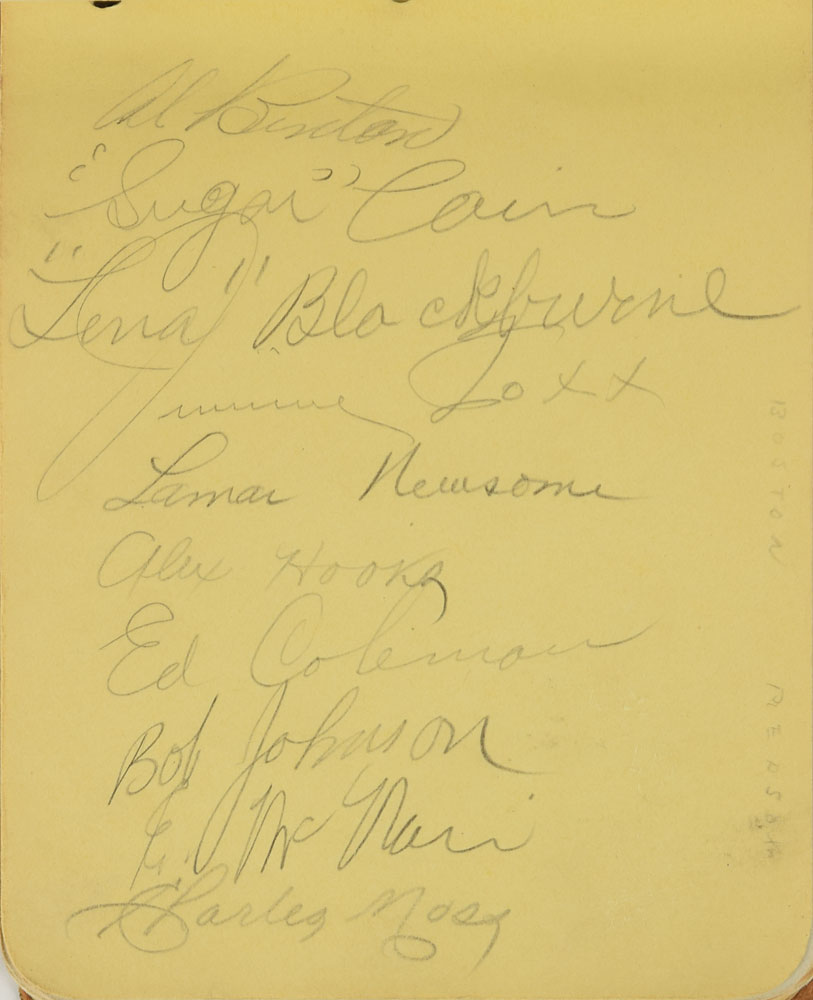 Al Benton
"Sugar" Cain
"Lena" Blackburne
Jimmie Foxx
Lamar Newsome
Alex Hooks
Ed Coleman
Bob Johnson
E. McNair
Charles Moss
BOSTON REDSOX